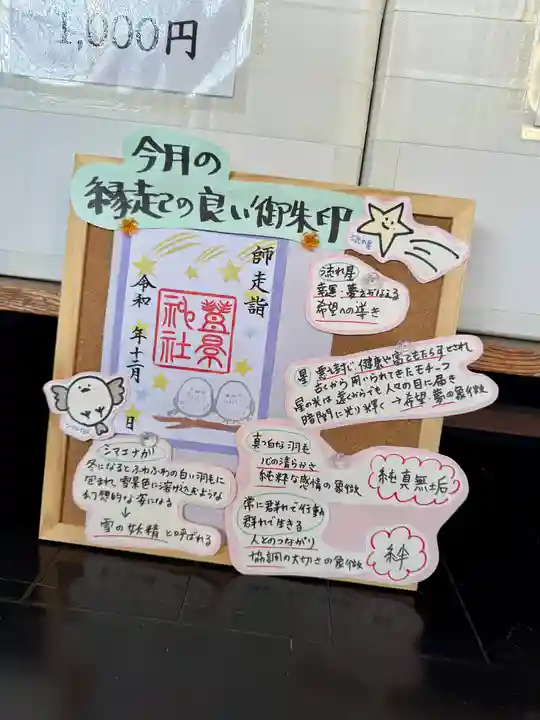 1,000円
今月の
縁起の良い御朱印
流れ星
師走詣
豊景神社
令和 年十二月 日
流れ星
幸運・夢をかなえる
希望への導き
星 悪を封じ、健康や富をもたらすとされ
古くから用いられてきたモチーフ
星の光は遠くからでも、人々の目に届き
暗闇に光り輝く→希望・夢の象徴
シマエナガ
シマエナガ
冬になるとふわふわの白い羽毛に
包まれ、雪景色に溶け込むような
幻想的な姿になる
↓
雪の妖精 と呼ばれる
真っ白な羽毛
心の清らかさ
純粋な感情の象徴
純真無垢
常に群れで行動
群れで生きる
人とのつながり
協調の大切さの象徴
絆